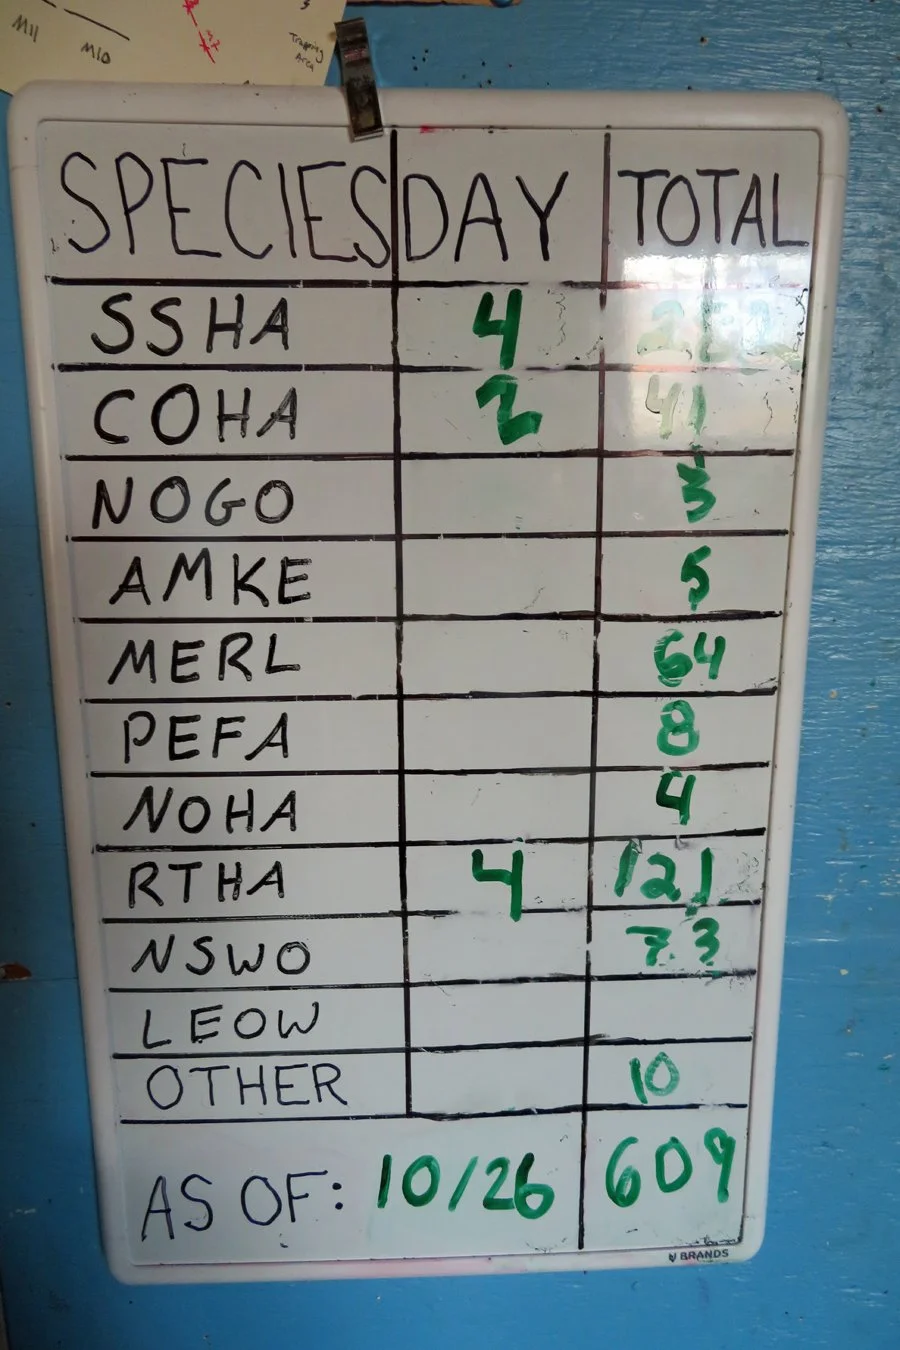 M11
M10
Trapping
Area
SPECIES DAY TOTAL
SSHA 4
COHA 2 41
NOGO 3
AMKE 5
MERL 64
PEFA 8
NOHA 4
RTHA 4 121
NSWO 73
LEOW
OTHER 10
AS OF: 10/26 609
BRANDS